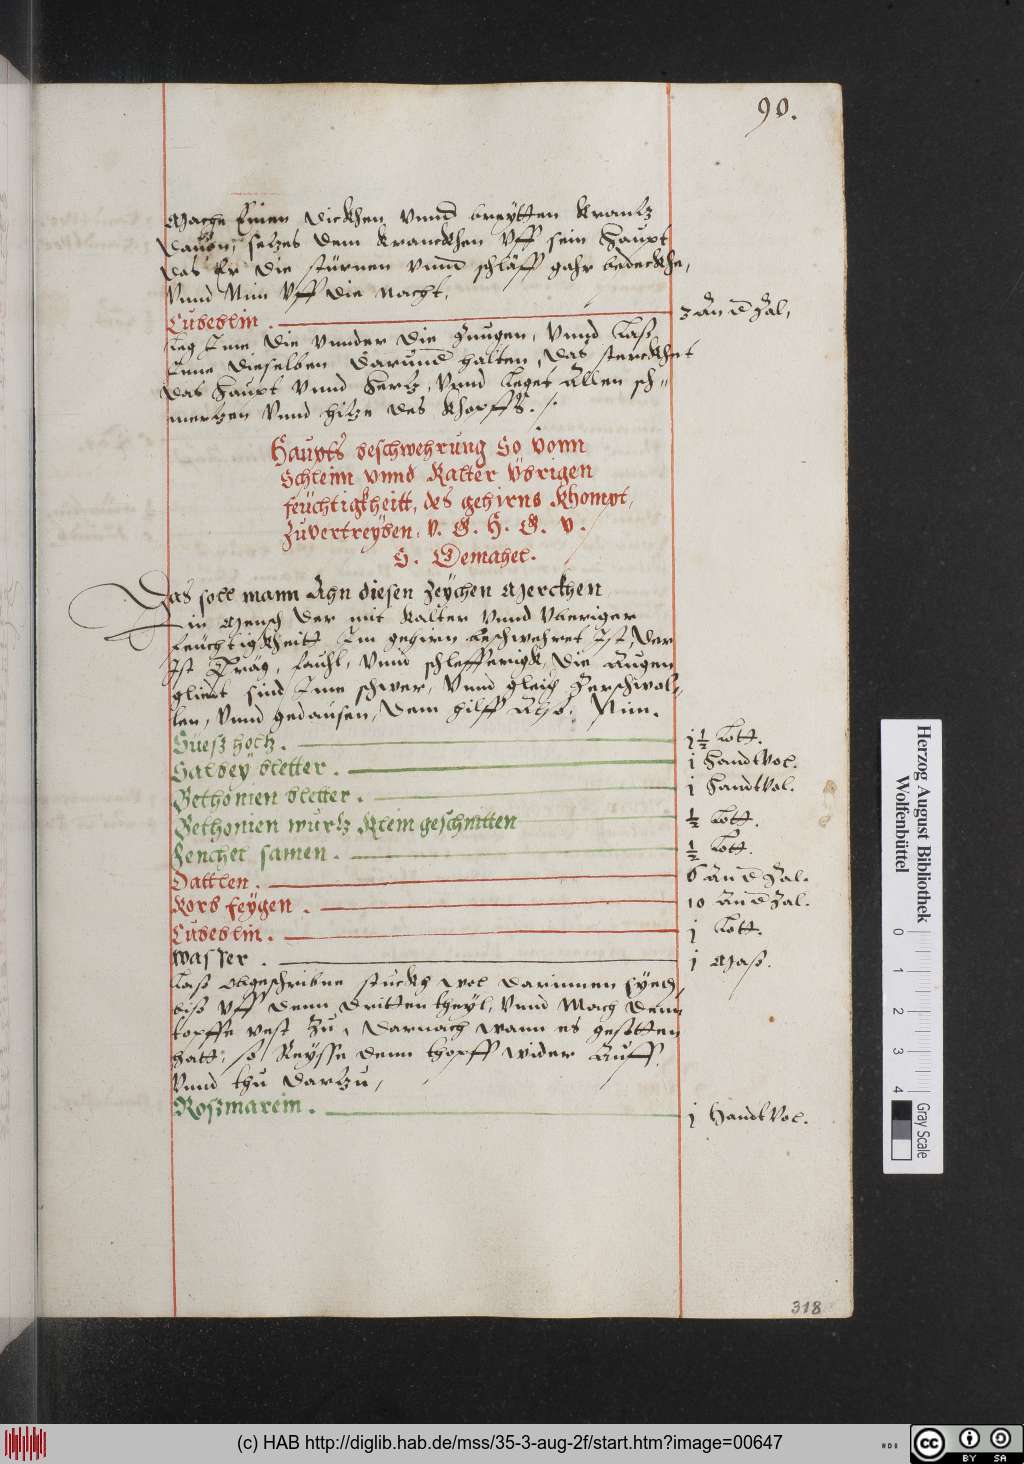 90.
Mache Einen dickhen vnnd breÿtten Krantz
dauon, setzes dem Kranckhen vff sein Haupt
das Er die stürnen vnnd schläff gahr bedeckhe,
Vnnd Nim vff die Nacht.
Cubeblin. 3 An d Zal,
Leg Ime die vnnder die Zungen, vnnd Lasß
Inne dieselben darunnd halten, das sterckhet
das Haupt vnnd Hertz, Vnnd Leget Allen sch=
mertzen vnnd hitze des Khopffs. /.
Haupts beschwehrung So vonn
Schleim vnnd Kalter Übrigen
feüchtigkheitt, des gehirns Khompt,
Zuvertreÿben. V. G. H. G. V.
H. Gemahel.
Das soll mann Ahn diesen Zeÿchen Merckhen
Ein Mensch der mit Kalter vnnd Vberiger
feüchtigkheitt Im gehirn beschwehret Ist, der
Ist Träg, fauhl, vnnd schlefferigk, die Augen
glieder sind Ime schwer, Vnnd gleich Zerschwol=
len, vnnd gedausen, Dem hilff Also. Nim.
Süeszholtz. j½ Lott.
Salbeÿ bletter. j Handtvol.
Bethonien bletter. j Handtvol.
Bethonien wurtz Klein geschnitten ½ Lott.
Fenchel samen. ½ Lott.
Dattlen. 6 An d Zal.
Korb feÿgen. 10 An d Zal.
Cubeblin. j Lott.
Wasser. j Masß.
Lasß obgeschribne stückh wol darinnen syeden,
bisß vff denn dritten theÿl, Vnnd Mach denn
topffe vest Zu, darnach wann es gesotten
hatt, so Reÿsse denn thopff wider Auff,
Vnnd thu dartzu,
Roszmarein. j Handtvol.
318
Herzog August Bibliothek
Wolfenbüttel
0 1 2 3 4
Gray Scale
(c) HAB http://diglib.hab.de/mss/35-3-aug-2f/start.htm?image=00647
cc BY SA